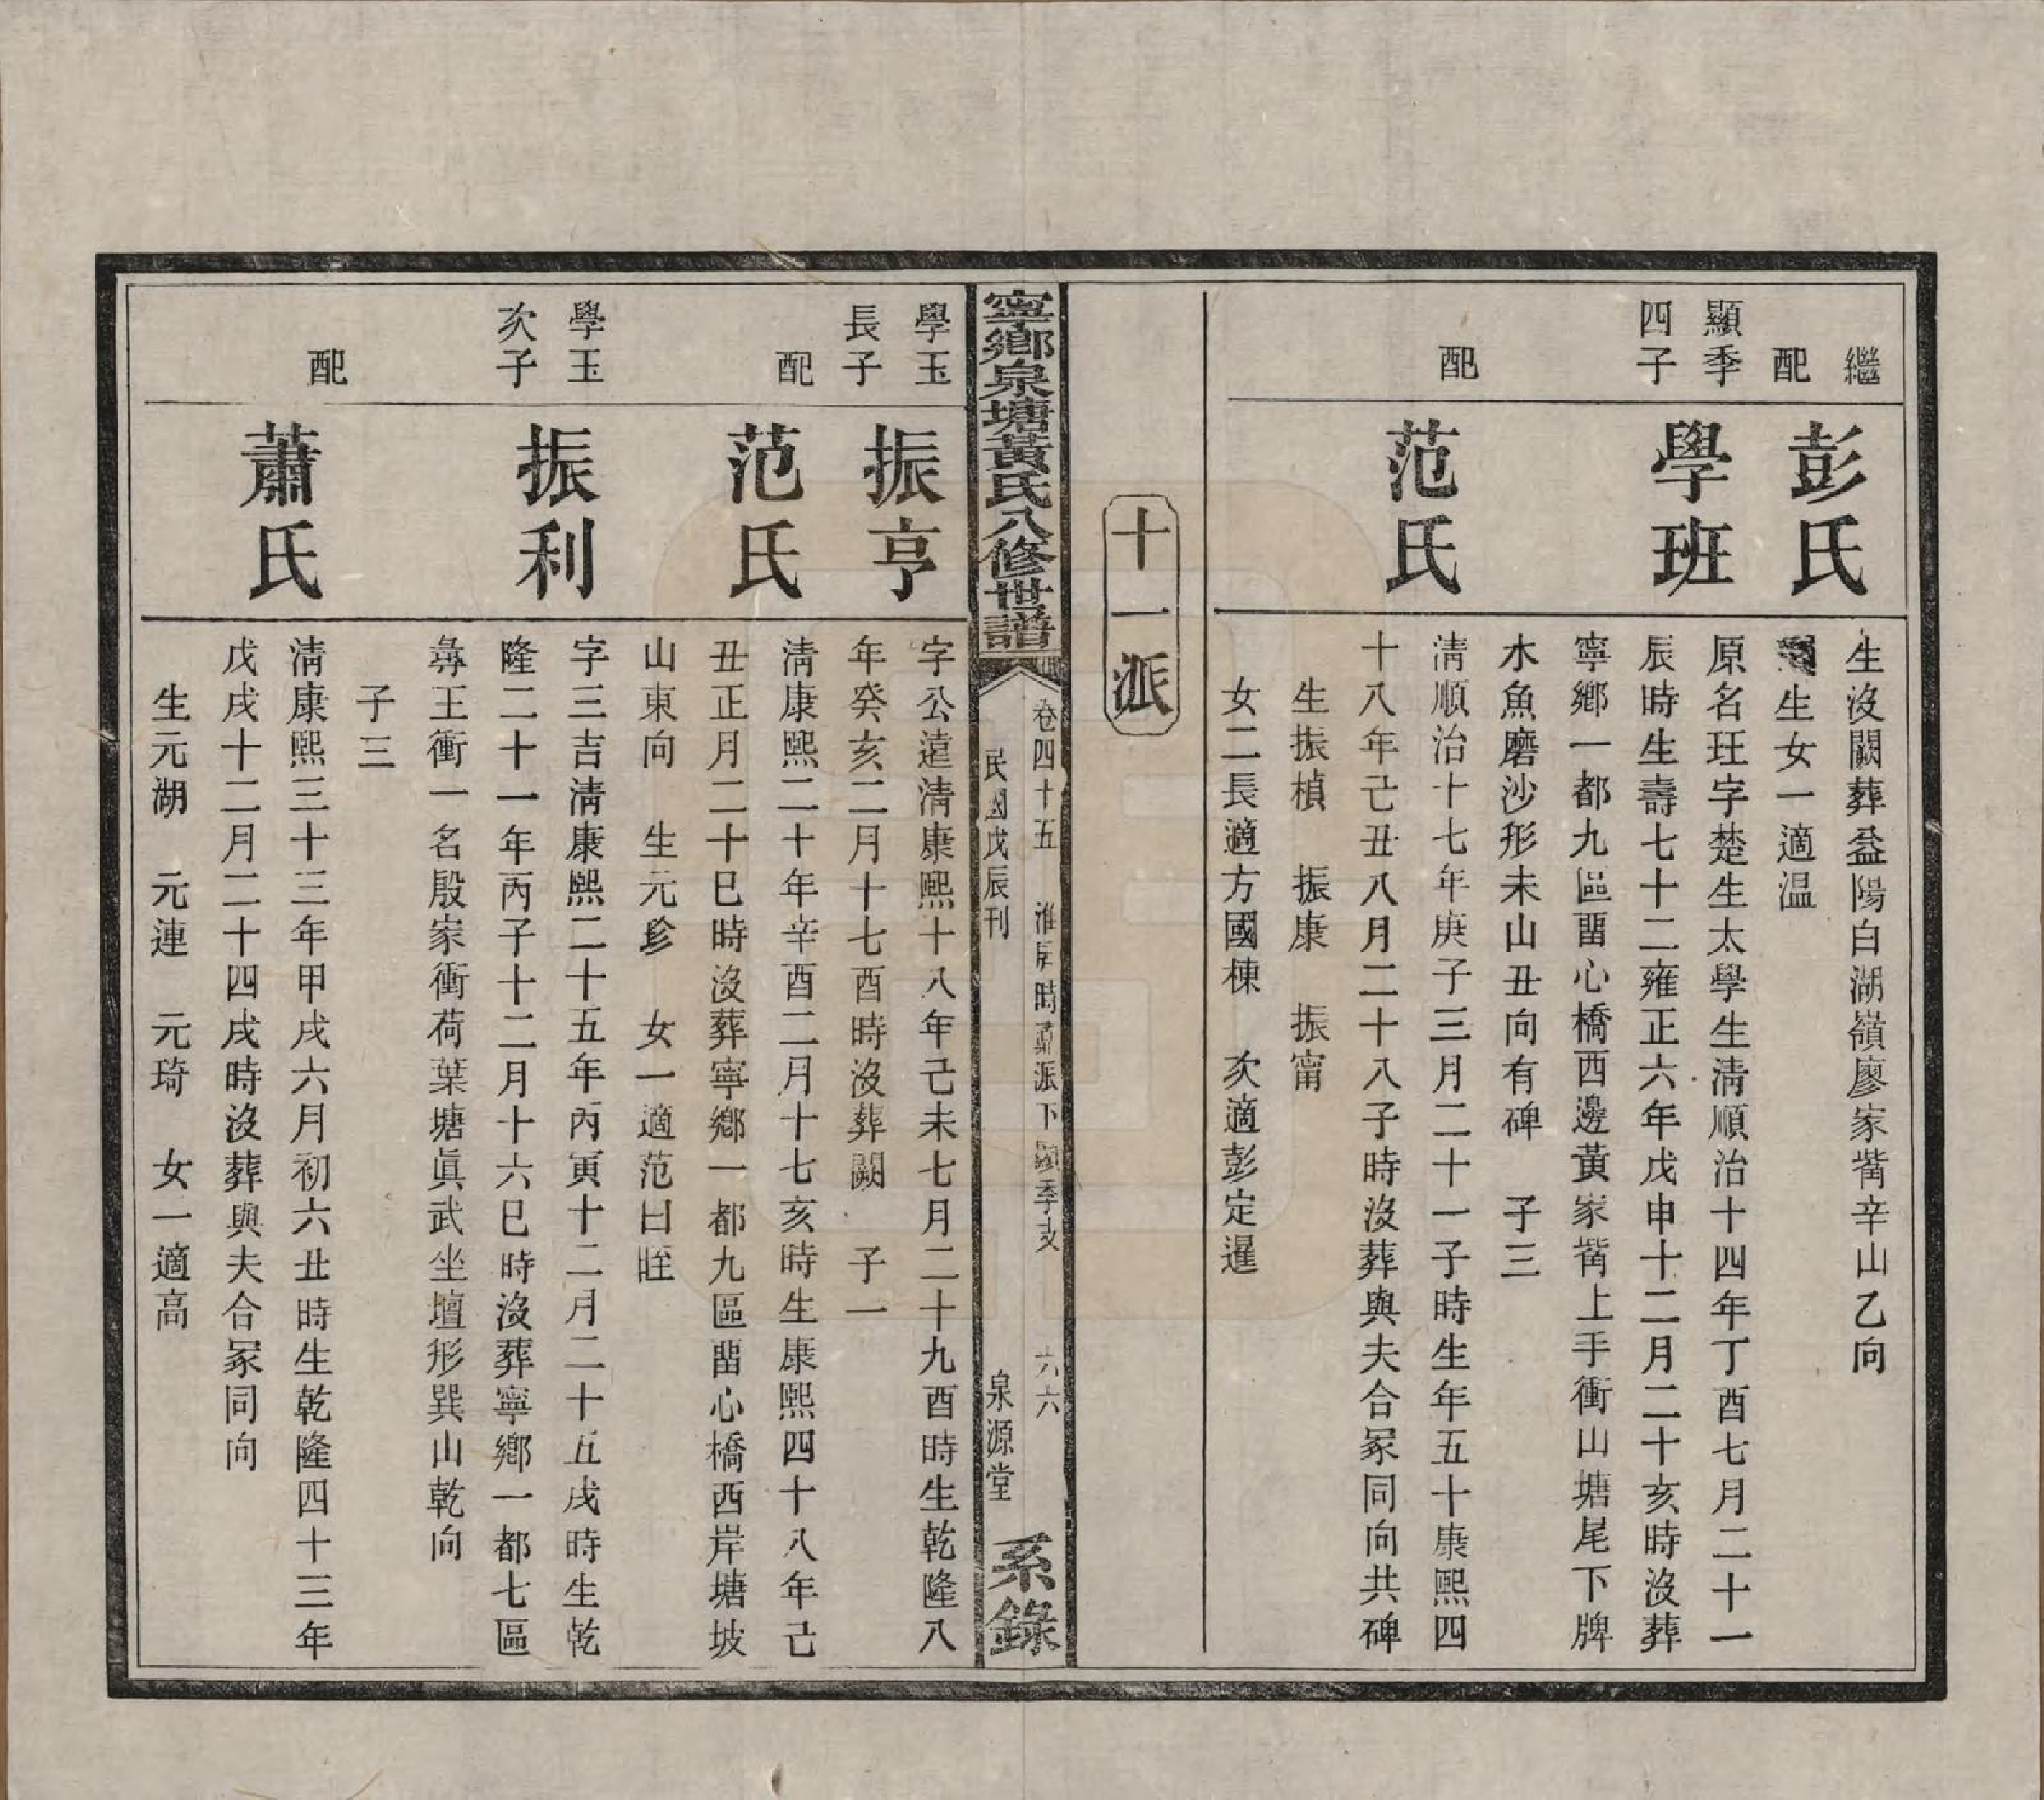 繼
配
彭氏
生沒闕葬益陽白湖嶺廖家觜辛山乙向
生女一適温
顯季
四子
學班
原名玨字楚生太學生清順治十四年丁酉七月二十一
辰時生壽七十二雍正六年戊申十二月二十亥時沒葬
寧鄉一都九區畱心橋西邊黃家觜上手衝山塘尾下牌
木魚磨沙形未山丑向有碑 子三
配
范氏
清順治十七年庚子三月二十一子時生年五十康熙四
十八年己丑八月二十八子時沒葬與夫合冢同向共碑
生振楨 振康 振甯
女二長適方國棟 次適彭定暹
十一派
寧鄉泉塘黃氏八修世譜
卷四十五
派下顯季支
六六
民國戊辰刊
泉源堂
系錄
學玉
長子
振亨
字公遠清康熙十八年己未七月二十九酉時生乾隆八
年癸亥二月十七酉時沒葬闕 子一
配
范氏
清康熙二十年辛酉二月十七亥時生康熙四十八年己
丑正月二十巳時沒葬寧鄉一都九區畱心橋西岸塘坡
山東向 生元珍 女一適范日眰
學玉
次子
振利
字三吉清康熙二十五年丙寅十二月二十五戌時生乾
隆二十一年丙子十二月十六巳時沒葬寧鄉一都七區
彝王衝一名殷家衝荷葉塘眞武坐壇形巽山乾向
子三
配
蕭氏
清康熙三十三年甲戌六月初六丑時生乾隆四十三年
戊戌十二月二十四戌時沒葬與夫合冢同向
生元湖 元連 元琦 女一適高